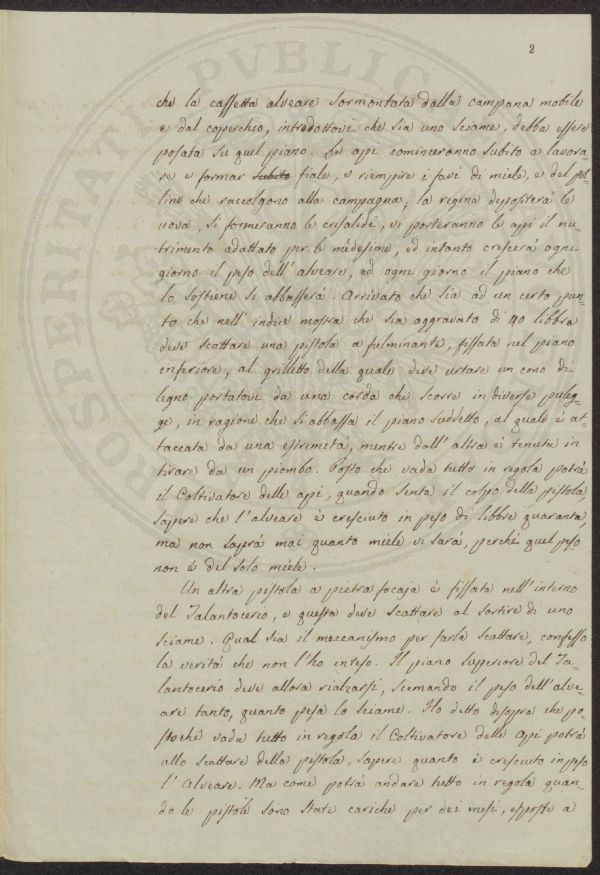 2
che la cassetta alveare sormontata dalla campana mobile
e dal coperchio, introdottovi che sia uno sciame, debba essere
posata su quel piano. Le api cominceranno subito a lavora-
re e formar subito fiale, e riempire i favi di miele, e del pol-
line che raccolgono alla campagna, la regina depositerà le
uova, si formeranno le crisalidi, vi porteranno le api il nu-
trimento adattato per le medesime, ed intanto crescerà ogni
giorno il peso dell'alveare, ed ogni giorno il piano che
lo sostiene si abbasserà. Arrivato che sia ad un certo pun-
to che nell'indice mostra che sia aggravato di 40 libbre
deve scattare una pistola a fulminante, fissata nel piano
inferiore, al grilletto della quale deve urtare un cono di
legno portatovi da una corda che scorre in diverse puleg-
ge, in ragione che si abbassa il piano suddetto, al quale è at-
taccata da una estremità, mentre dall'altra è tenuta in
tirare da un piombo. Posto che vada tutto in regola potrà
il Coltivatore delle api, quando senta il colpo della pistola,
sapere che l'alveare è cresciuto in peso di libbre quaranta,
ma non saprà mai quanto miele vi sarà, perché quel peso
non è del solo miele.
Un altra pistola a pietra focaja è fissata nell'interno
del Talantocerio, e questa deve scattare al sortire di uno
sciame. Qual sia il meccanismo per farla scattare, confesso
la verità che non l'ho inteso. Il piano superiore del Ta-
lantocerio deve allora rialzarsi, scemando il peso dell'alve-
are tanto, quanto pesa lo sciame. Ho detto disopra che po-
stoché vada tutto in regola il Coltivatore delle Api potrà
allo scattare della pistola, sapere quanto è cresciuto in peso
l'Alveare. Ma come potrà andare tutto in regola quan-
do le pistole sono state cariche per dei mesi, esposte a
PROSPERITATI PVBLIC